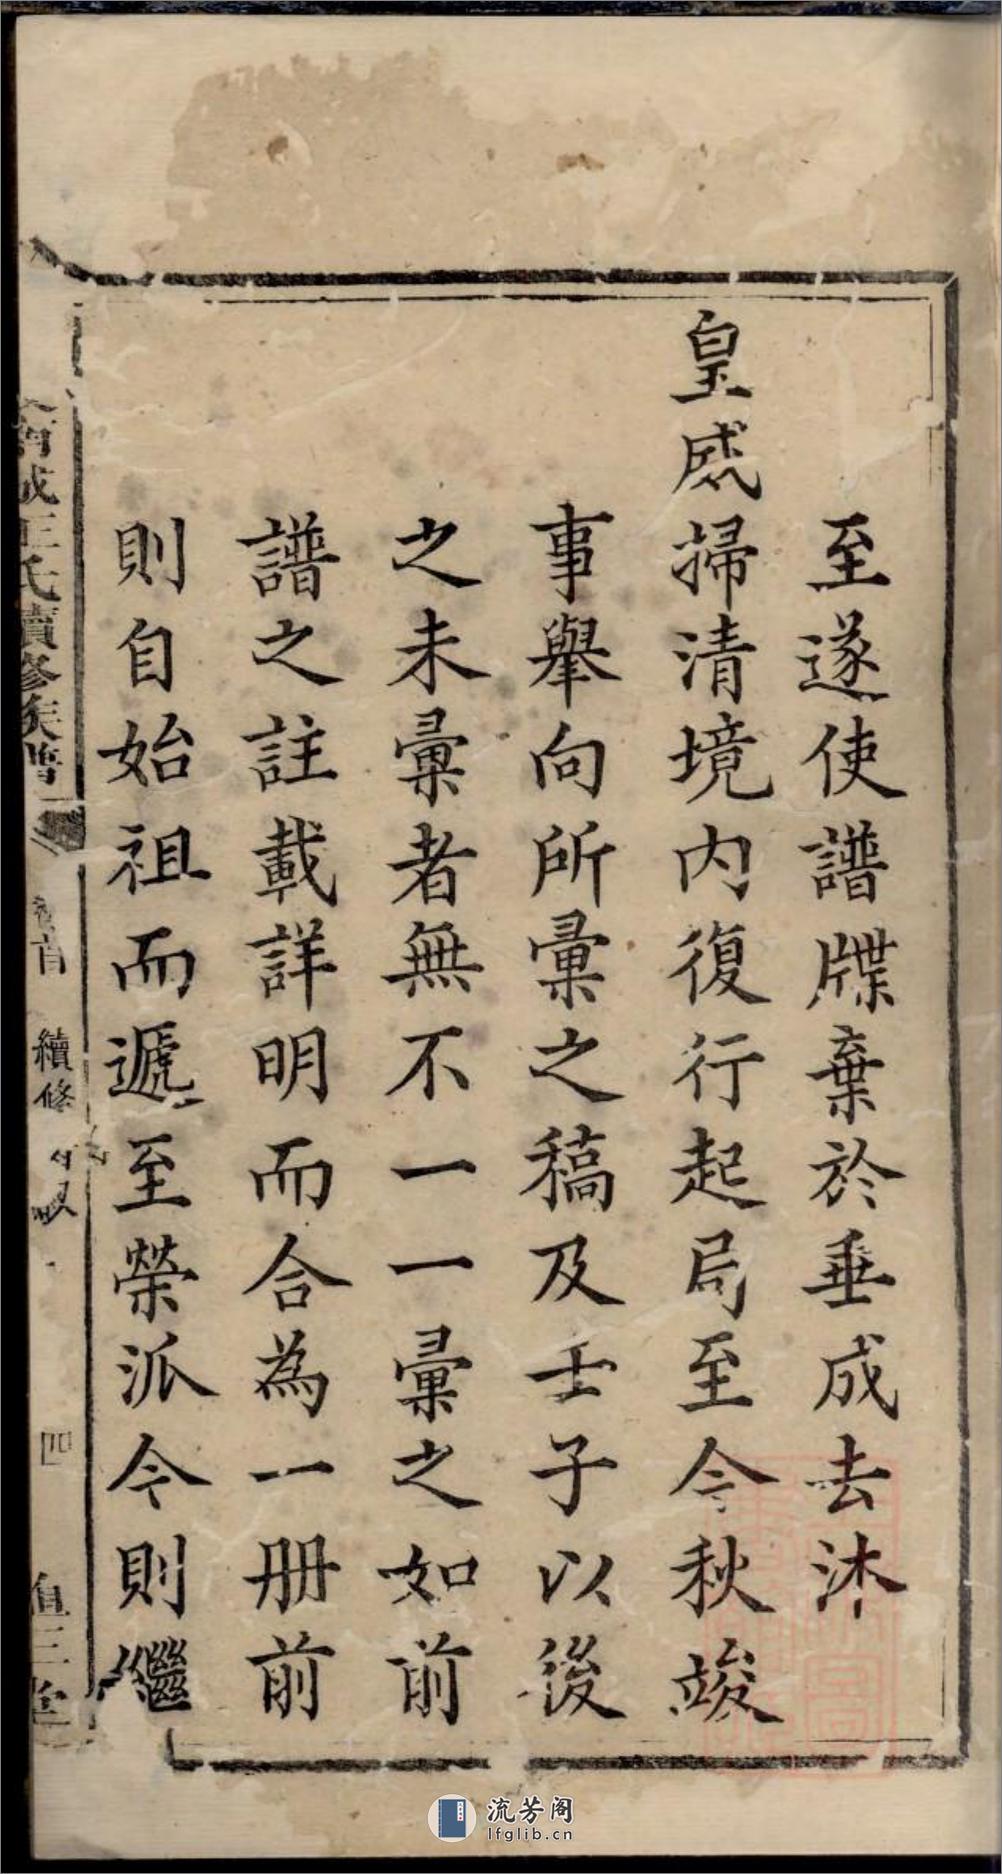 至遂使譜牒棄於垂成去沐
皇威掃清境内復行起局至今秋竣
事舉向所彙之稿及士子以後
之未彙者無不一一彙之如前
譜之註載詳明而合為一册前
則自始祖而遞至榮派今則繼
氏續修族譜
首
續修
四
三堂
流芳阁
lfglib.cn